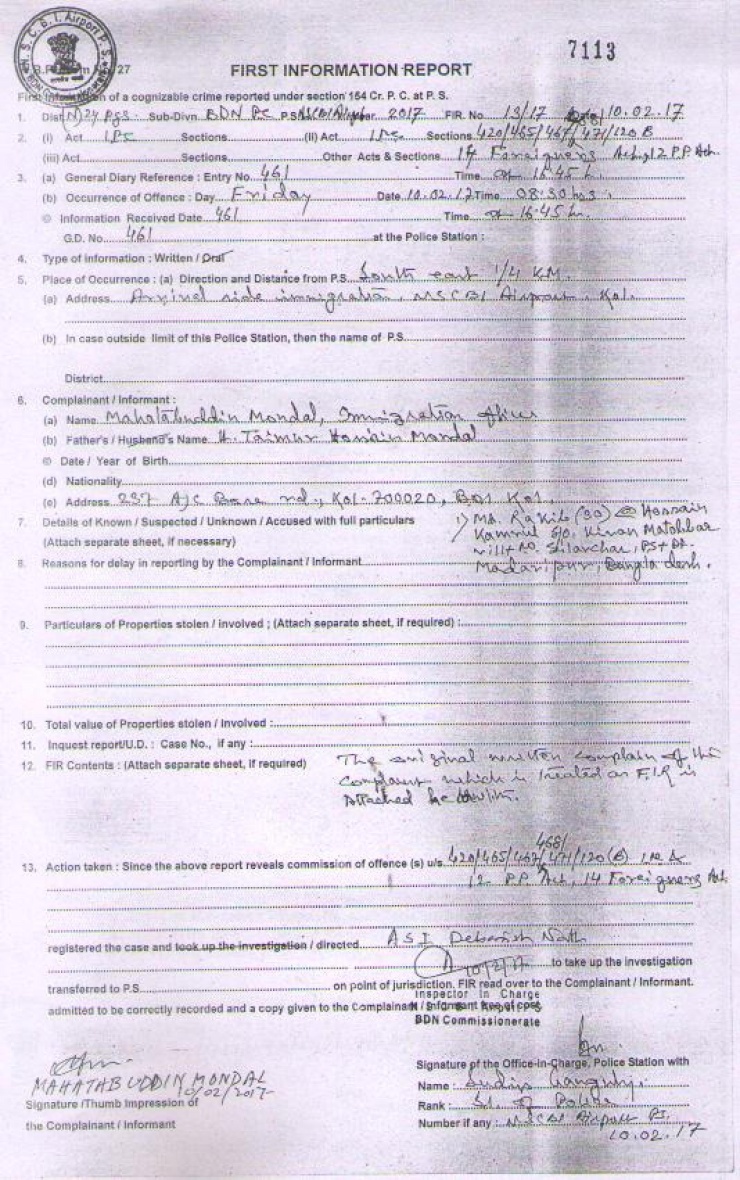 N. S. C. B. I. Airport P. S.
7113
27
FIRST INFORMATION REPORT
First Information of a cognizable crime reported under section 154 Cr. P. C. at P. S.
1. Dist (N) 24 Pgs. Sub-Divn. BDN PC P.S NSCBI Airport Year 2017 FIR. No 13/17 10.02.17
2. (i) Act IPC Sections (II) Act IPC Sections 420/465/467/471/120 B
(iii) Act Sections Other Acts & Sections 14 Foreigners Act, 12 P.P. Act.
3. (a) General Diary Reference : Entry No. 461 Time at 16:45 h.
(b) Occurrence of Offence : Day Friday Date 10.02.17 Time 08:30 hrs.
© Information Received Date 461 Time at 16:45 h.
G.D. No. 461 at the Police Station :
4. Type of Information : Written / Oral
5. Place of Occurrence : (a) Direction and Distance from P.S. South east 1/4 KM.
(a) Address Arrival side immigration, NSCBI Airport, Kol.
(b) In case outside limit of this Police Station, then the name of P.S.
District
6. Complainant / Informant :
(a) Name Mahatabuddin Mondal, Immigration officer
(b) Father's / Husband's Name Taimur Hossain Mondal
© Date / Year of Birth
(d) Nationality
(e) Address 237 AJC Bose rd., Kol-700020, Kol.
7. Details of Known / Suspected / Unknown / Accused with full particulars 1) Md. Rakib (30) @ Hossain
(Attach separate sheet, if necessary) Kamrul S/O. Kiran Matobbar
vill+PO. Silarchar, PS+Dt.
8. Reasons for delay in reporting by the Complainant / Informant Madaripur, Bangladesh.
9. Particulars of Properties stolen / involved ; (Attach separate sheet, if required) :
10. Total value of Properties stolen / Involved :
11. Inquest report/U.D. : Case No., if any :
12. FIR Contents : (Attach separate sheet, if required) The original written complain of the
Complaint which is treated as F.I.R is
Attached herewith.
468/
13. Action taken : Since the above report reveals commission of offence (s) u/s. 420/465/467/471/120(B) IPC &
12 P.P. Act, 14 Foreigners Act.
registered the case and took up the investigation / directed ASI Debasish Nath
10/2/17 to take up the investigation
transferred to P.S. on point of jurisdiction. FIR read over to the Complainant / Informant.
Inspector In Charge
admitted to be correctly recorded and a copy given to the Complainant / Informant free of cost
Airport P.S
BDN Commissionerate
Signature of the Office-in-Charge, Police Station with
MAHATABUDDIN MONDAL
10/02/2017
Name : Sudip Ganguly.
Signature /Thumb Impression of
Rank : S.I. of Police
the Complainant / Informant
Number if any : NSCBI Airport PS.
10.02.17